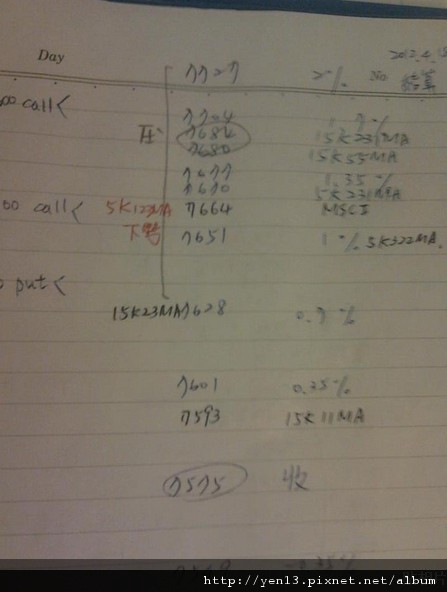 Day
2012.4.18
No. 結算
7727 2%
00 call<
7704 1.7%
壓 7684 15K231MA
7680 15K55MA
7677 1.35%
7670 5K231MA
00 call< 5K123MA 7664 MSCI
下彎 7651 1% 5K322MA.
put<
15K23MA 7628 0.7%
7601 0.35%
7593 15K11MA
7575 收
-0.35%
http://yen13.pixnet.net/album